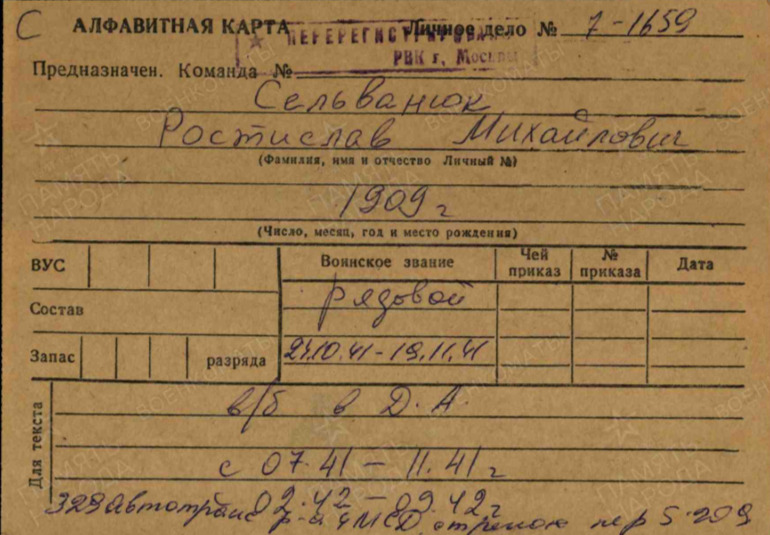 С АЛФАВИТНАЯ КАРТА Личное дело № 7-1659
ПЕРЕРЕГИСТРИРОВАН
РВК г. Москвы
Предназначен. Команда №
Сельванюк
Ростислав Михайлович
(Фамилия, имя и отчество Личный №)
1909 г
(Число, месяц, год и место рождения)
ВУС Воинское звание Чей приказ № приказа Дата
Состав рядовой
Запас разряда 24.10.41-19.11.41
Для текста
в/б в Д.А.
с 07.41 - 11.41 г
02.42 - 09.42 г
329 автотранс р-та 4 МСД стрелок
ПАМЯТЬ НАРОДА
ВОЕНКОМАТЫ